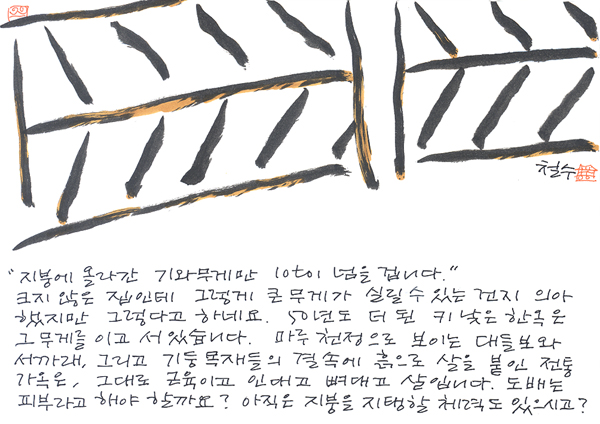 철수
"지붕에 올라간 기와무게만 10t이 넘을 겁니다."
크지 않은 집인데 그렇게 큰 무게가 실릴 수 있는 건지 의아
했지만 그렇다고 하네요. 50년도 더 된 키 낮은 한옥은
그 무게를 이고 서 있습니다. 마루 천정으로 보이는 대들보와
서까래, 그리고 기둥 목재들의 결속에 흙으로 살을 붙인 전통
가옥은, 그대로 근육이고 인대고 뼈대고 살입니다. 도배는
피부라고 해야 할까요? 아직은 지붕을 지탱할 체력도 있으시고?